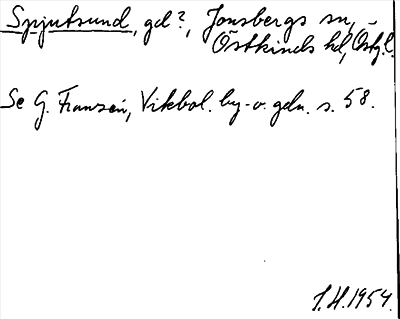 Spjutsund, gd?, Jonsbergs sn,
Östkinds hd, Östgl.
Se G. Franzén, Vikbol. by- o. gdn. s. 58.
I.H. 1954.